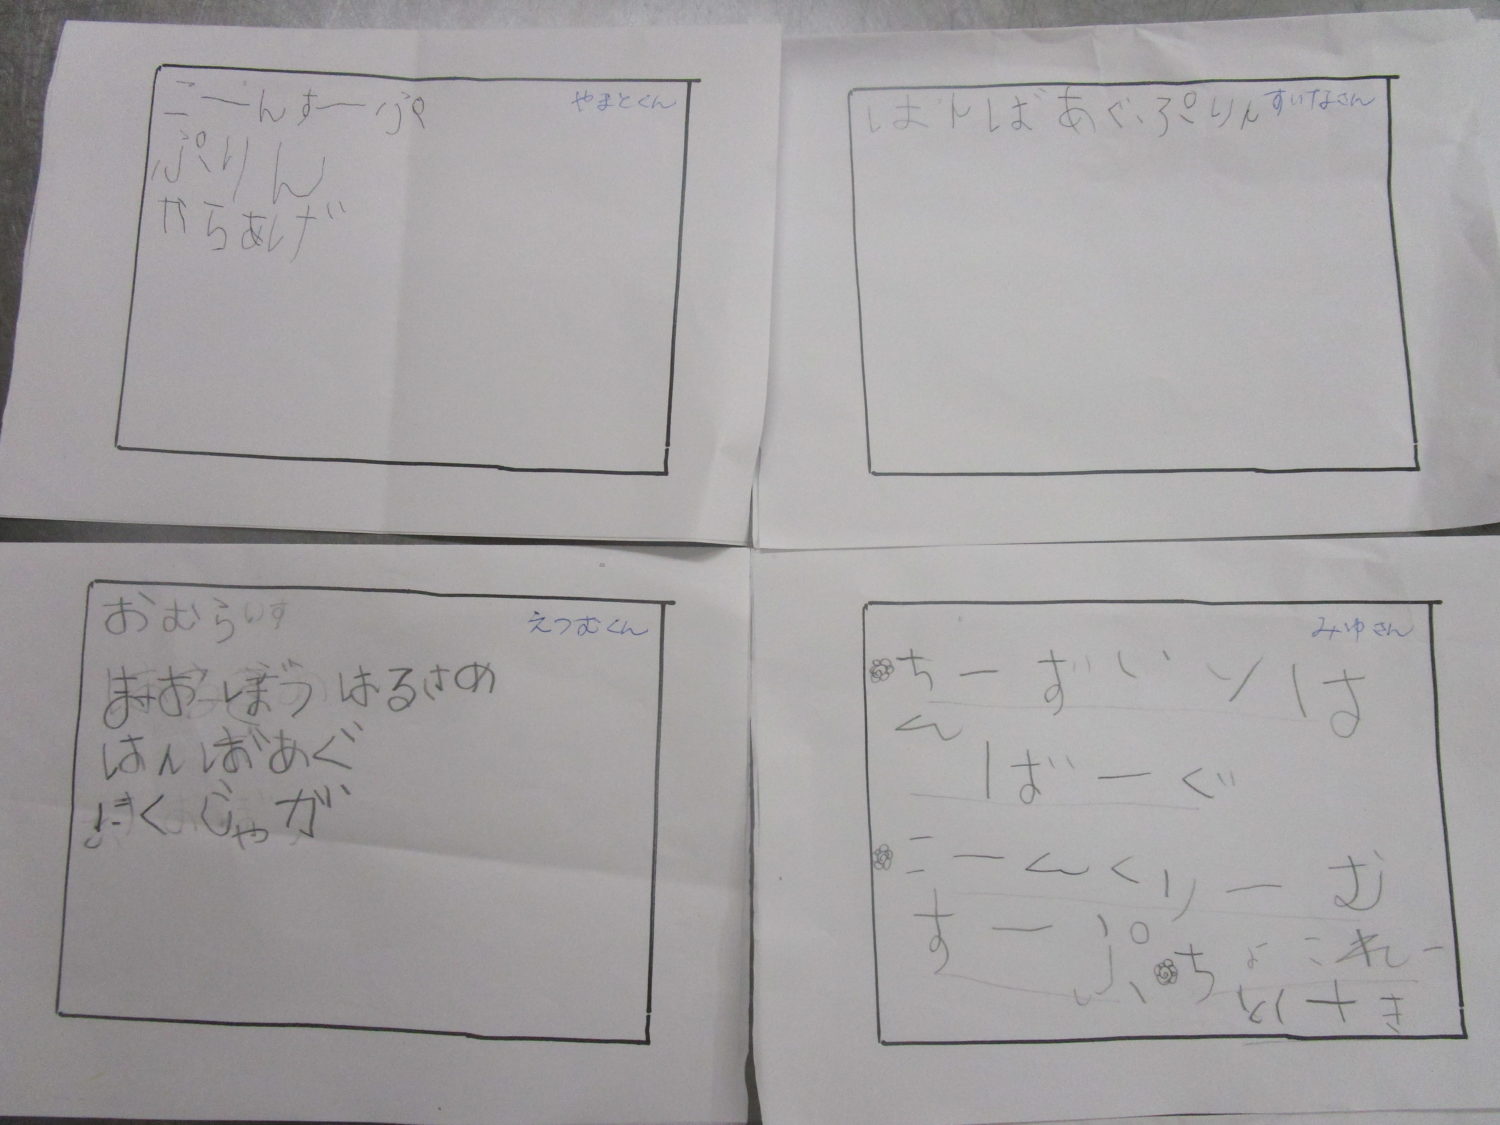 やまとくん
こーんすーぷ
ぷりん
からあげ
すいなさん
はんばあぐぷりん
えつむくん
おむらいす
まあぼうはるさめ
はんばあぐ
にくじゃが
みゆさん
ちーずいりは
ん
ばーぐ
こーんくりーむ
すーぷ
ちょこれー
と